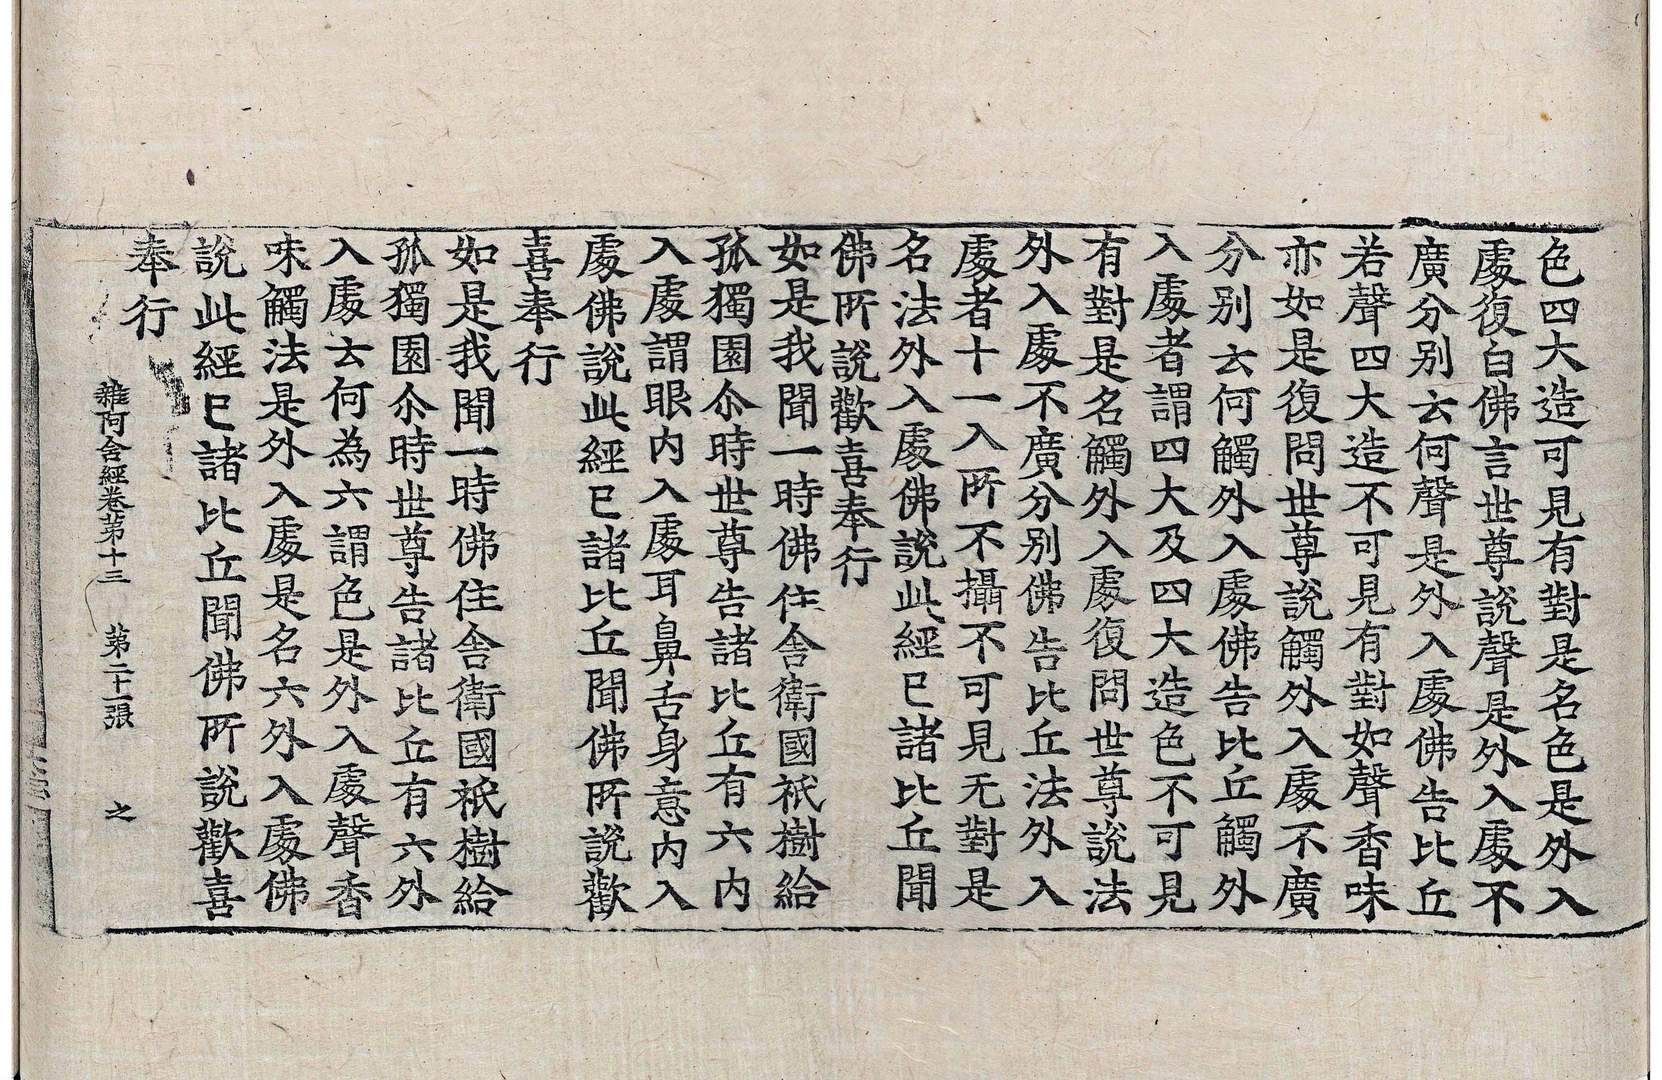 色四大造可見有對是名色是外入
處復白佛言世尊說聲是外入處不
廣分別云何聲是外入處佛告比丘
若聲四大造不可見有對如聲香味
亦如是復問世尊說觸外入處不廣
分別云何觸外入處佛告比丘觸外
入處者謂四大及四大造色不可見
有對是名觸外入處復問世尊說法
外入處不廣分別佛告比丘法外入
處者十一入所不攝不可見无對是
名法外入處佛說此經已諸比丘聞
佛所說歡喜奉行
如是我聞一時佛住舍衛國祇樹給
孤獨園尒時世尊告諸比丘有六內
入處謂眼內入處耳鼻舌身意內入
處佛說此經已諸比丘聞佛所說歡
喜奉行
如是我聞一時佛住舍衛國祇樹給
孤獨園尒時世尊告諸比丘有六外
入處云何為六謂色是外入處聲香
味觸法是外入處是名六外入處佛
說此經已諸比丘聞佛所說歡喜
奉行
雜阿含經卷第十三 第二十一張 之